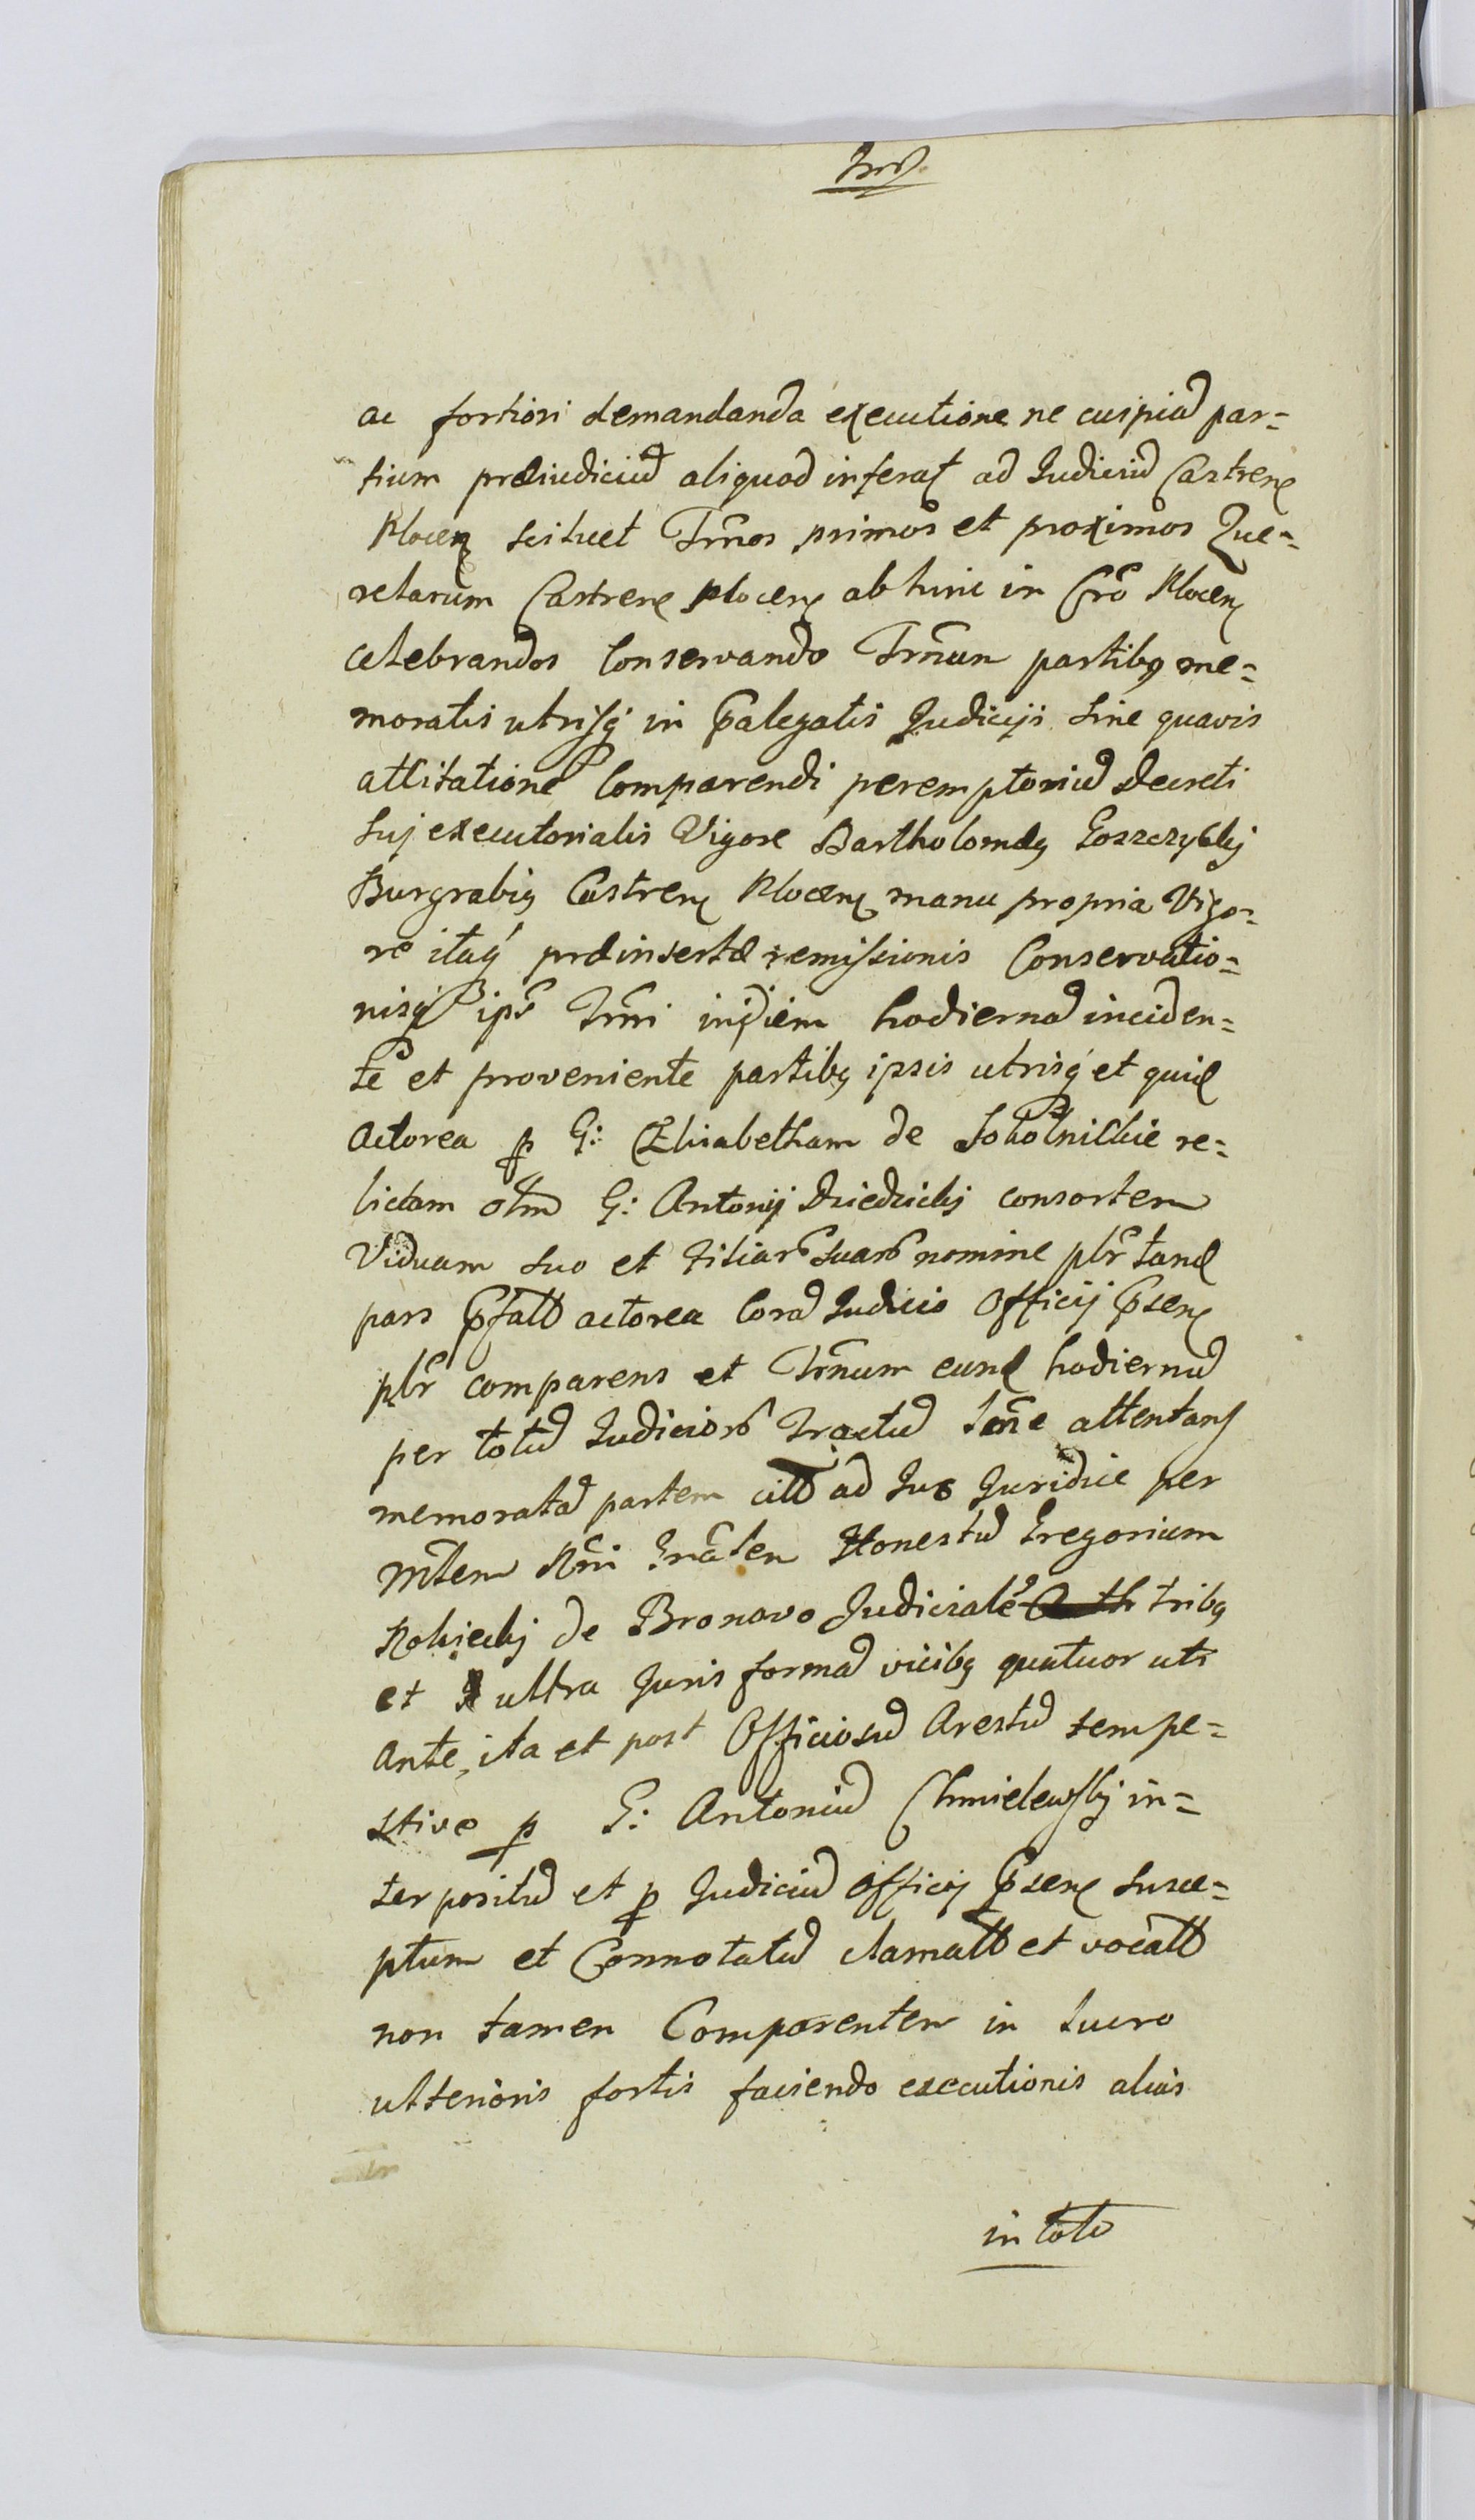 ac fortiori demandanda executione ne cuipiã par=
tium præiudiciũ aliquod inferat ad Judiciũ Castren
Plocen scituet Trños primos et proximos Que=
relarum Castren Plocen abhinc in Cro Plocen
celebrandos Conservando Trñum partibq me=
moratis utrisq in p̃alegatis Judicijs Sine quavis
attitatione Comparendi peremptoriũ Decreti
Suj executorialis Vigore Bartholomæq Goszczyckij
Burgrabiq Castren Plocen manu propria Vigo=
re itaq præinsertæ remissionis Conservatio=
nisq ips Trm̃i in diem hodiernã inciden=
te et proveniente partibq ipsis utrisq et quid
Actorea p G: Elisabetham de Sokolnickie re=
lictam olm G: Antonij Dziedzickij consortem
Viduam suo et filiarũ suarũ nomine plr tand
pars p̃fatt actorea Corã Judicio Officij p̃sen
plr comparens et Trñum eund hodiernũ
per totũ Judiciorũ Tractũ attentans
memoratã partem citt ad Jus Juridice per
Mtem Rñi Gñalem Honestũ Gregorium
Rokickij de Bronowo Judiciale tribq
et ultra Juris formã vicibq quatuor uti
Ante, ita et post Officiosũ Arestũ tempe=
stive p G: Antoniũ Chmielewskij in=
terpositũ et p Judiciũ Officij p̃sen susce=
ptum et Connotatũ clamatt et vocatt
non tamen Comparentem in lucro
ulterioris fortis faciendo executionis alias
in toto